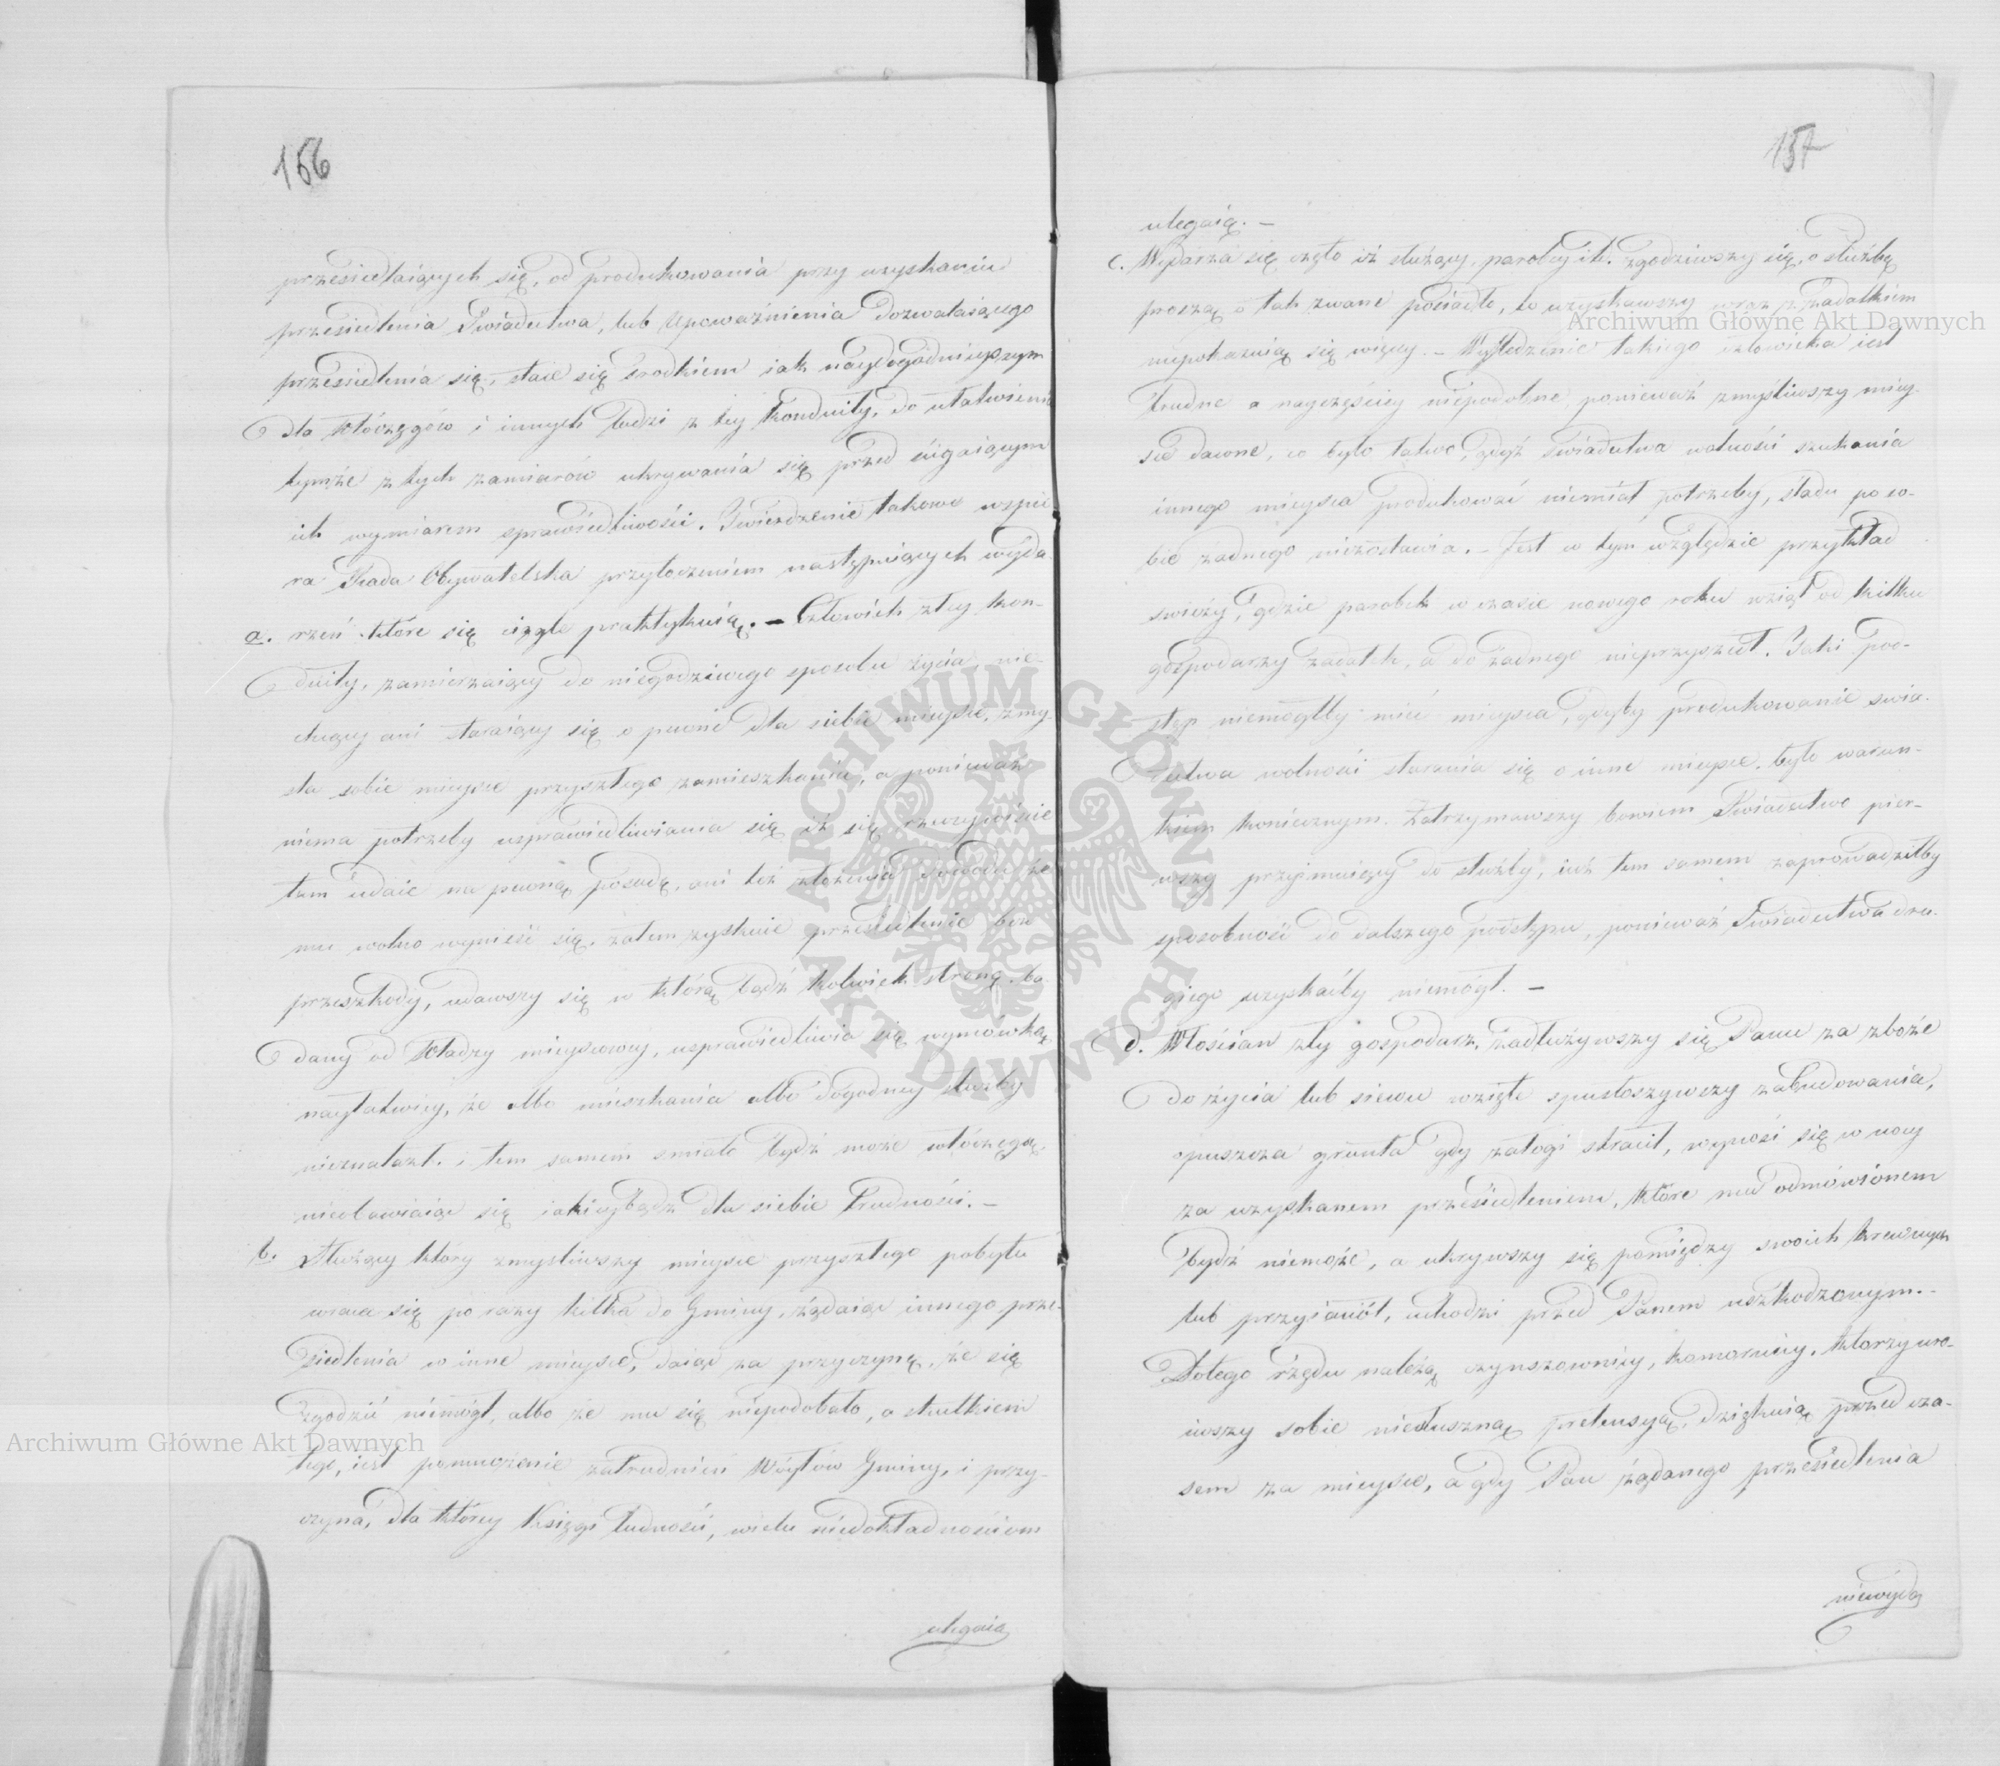 156
przesiedlaiących się, od produkowania przy uzyskaniu
przesiedlenia Świadectwa, lub Upoważnienia dozwalaiącego
przesiedlenia się, staie się środkiem iak naydogodnieyszym
dla Włóczęgów i innych ludzi z tey Konduity, do ułatwienia
tymże z tych zamiarów ukrywania się przed ścigaiącym
ich wymiarem sprawiedliwości. Twierdzenie takowe wspie
ra Rada Obywatelska przytoczeniem następuiących wyda
a. rzeń które się ciągle praktykuią. – Człowiek złey kon-
duity, zamierzaiący do niegodziwego sposobu życia, nie-
chcący ani staraiący się o pewne dla siebie mieysce, zmy-
śla sobie mieysce przyszłego zamieszkania, a ponieważ
niema potrzeby usprawiedliwiania się iż się rzeczywiście
tam udaie na pewną posadę, ani też złożenia dowodu że
mu wolno wynieść się, zatem zyskuie przesiedlenie bez
przeszkody, udawszy się w którą bądź kolwiek stronę, ba
dany od Władzy mieyscowey, usprawiedliwia się wymówką
nayłatwiey, że albo mieszkania albo dogodney służby
nieznalazł. i tem samem śmiało bydź może włóczęgą,
nieobawiaiąc się iakieybądź dla siebie trudności. –
b. Służący który zmyśliwszy mieysce przyszłego pobytu
wraca się po razy kilka do Gminy, żądaiąc innego prze-
siedlenia w inne mieysce, daiąc za przyczynę, że się
zgodzić niemógł, albo że mu się niepodobało, a skutkiem
tego, iest pomnożenie zatrudnień Wóytów Gminy, i przy-
czyna, dla którey Księgi ludności, wielu niedokładnościom
ulegaią
157
ulegaią. –
c. Wydarza się często iż służący, parobcy itd. zgodziwszy się, o służbę
proszą o tak zwane posiadło, to uzyskawszy wraz z zadatkiem
niepokazuią się więcey. – Wyśledzenie takiego człowieka iest
trudne a nayczęściey niepodobne, ponieważ zmyśliwszy miey-
sce dawne, co było łatwo, gdyż Świadectwa wolności szukania
innego mieysca produkować niemiał potrzeby, śladu po so-
bie żadnego niezostawia. – Jest w tym względzie przykład
świeży, gdzie parobek w czasie nowego roku wziął od kilku
gospodarzy zadatek, a do żadnego nieprzyszedł. Taki pod-
stęp niemógłby mieć mieysca, gdyby produkowanie świa-
dectwa wolności starania się o inne mieysce, było warun-
kiem koniecznym. Zatrzymawszy bowiem Świadectwo pier-
wszy przyimuiący do służby, iuż tem samem zaprowadziłby
sposobność do dalszego podstępu, ponieważ Świadectwa dru-
giego uzyskaćby niemógł. –
d. Włościan zły gospodarz, zadłużywszy się Panu za zboże
do życia lub siewu wzięte spustoszywszy zabudowania,
opuszcza grunta gdy załogi stracił, wynosi się w nocy
za uzyskanem przesiedleniem, które mu odmówionem
bydź niemoże, a ukrywszy się pomiędzy swoich krewnych
lub przyiaciół, uchodzi przed Panem uszkodzonym. –
Do tego rzędu należą czynszownicy, komornicy, którzy uro-
iwszy sobie niesłuszną pretensyą, dziękuią przed cza-
sem za mieysce, a gdy Pan żądanego przesiedlenia
niewyda
Archiwum Główne Akt Dawnych
Archiwum Główne Akt Dawnych
ARCHIWUM GŁÓWNE AKT DAWNYCH